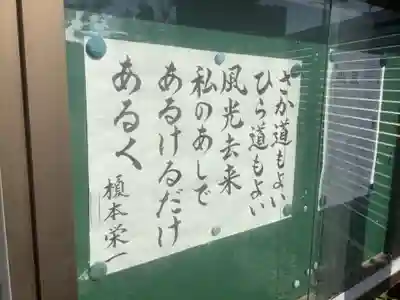 さか道もよい
ひら道もよい
風光去来
私のあしで
あるけるだけ
あるく
榎本栄一